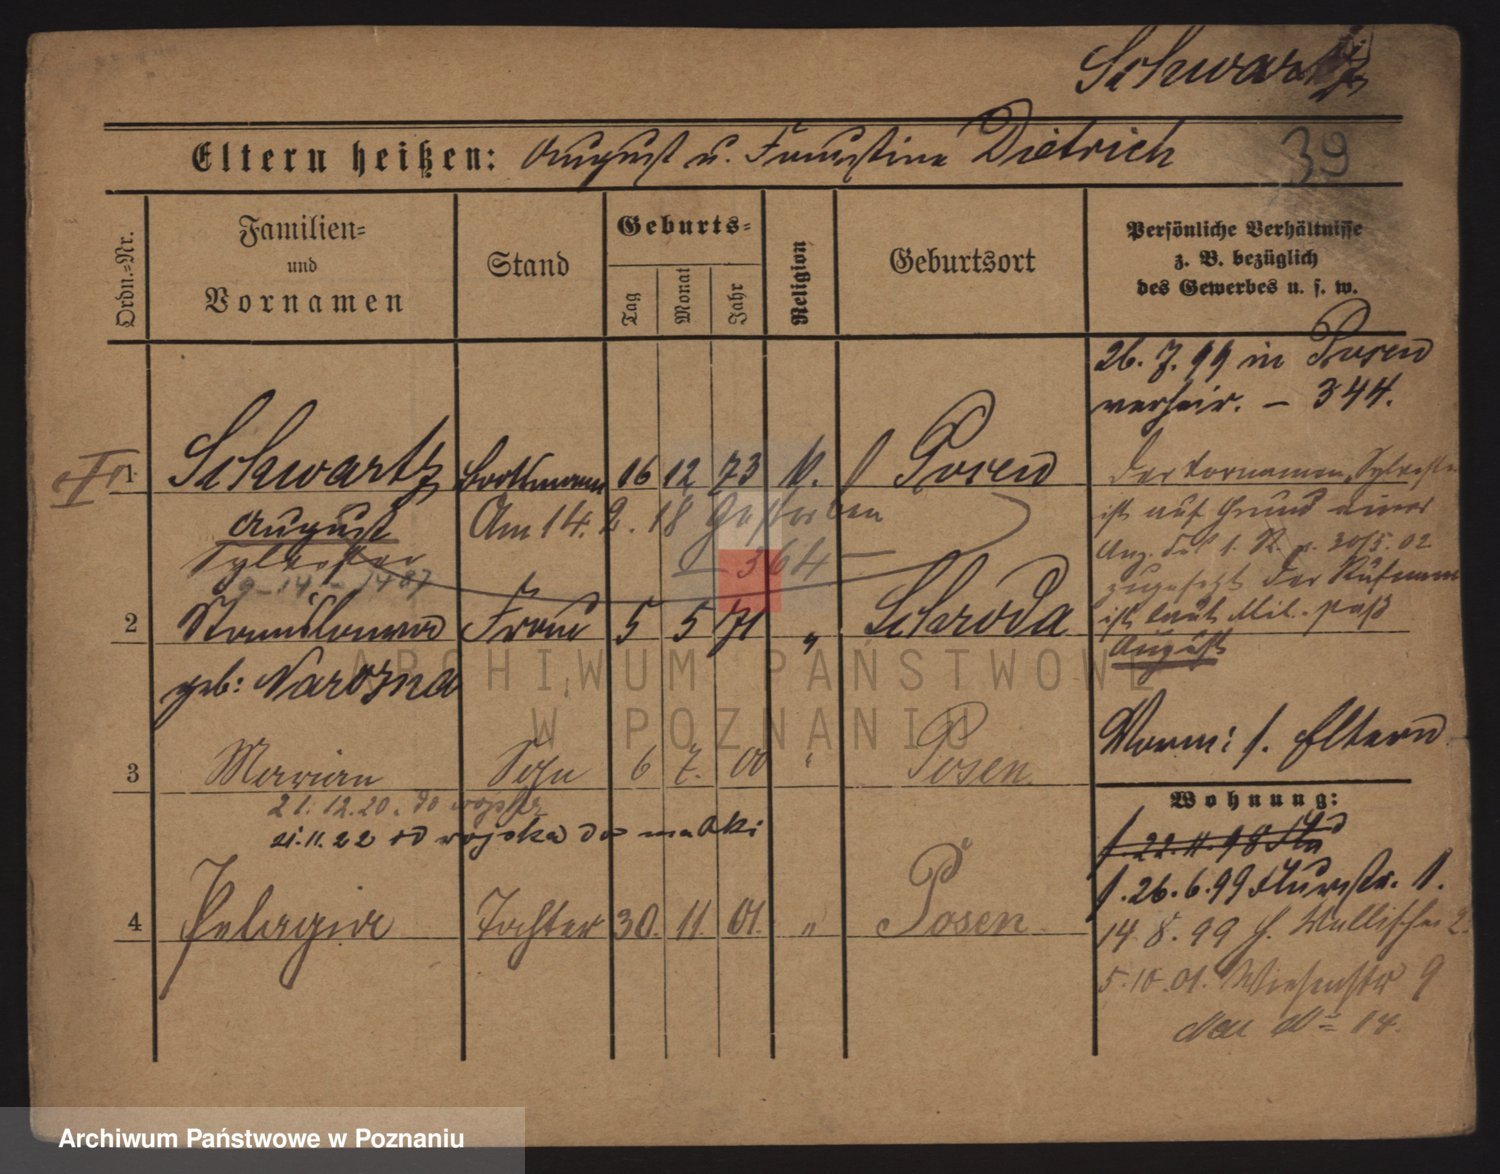 Schwartz
Eltern heißen: August u. Faustina Dietrich
39
Ordn.=Nr.
Familien= und Vornamen
Stand
Geburts=
Tag Monat Jahr
Religion
Geburtsort
Persönliche Verhältnisse
z. B. bezüglich
des Gewerbes u. s. w.
26. 7. 99 in Posen
verheir. - 344.
1 Schwartz 16 12 73 K. Posen
August
Sylvester
Am 14. 2. 18 gestorben
- 364 -
Der Vornamen Sylvester
ist auf Grund einer
Anz. 30/5. 02
zugesetzt Der Rufname
ist laut Mil. paß
August
2 Stanislawa Frau 5 5 71 " Schroda
geb: Narozna
Vorm: s. Eltern
3 Marian Sohn 6 7. 00 " Posen.
21. 12. 20. do wojska
21. 11. 22 od wojska do matki
4 Pelagia Tochter 30. 11. 01. " Posen
Wohnung:
f. 22. 11. 98
f. 26. 6. 99 Flurstr. 1.
14. 8. 99 Wallischei 2.
5. 10. 01. Wiesenstr 9
14.
ARCHIWUM PAŃSTWOWE
W POZNANIU
Archiwum Państwowe w Poznaniu